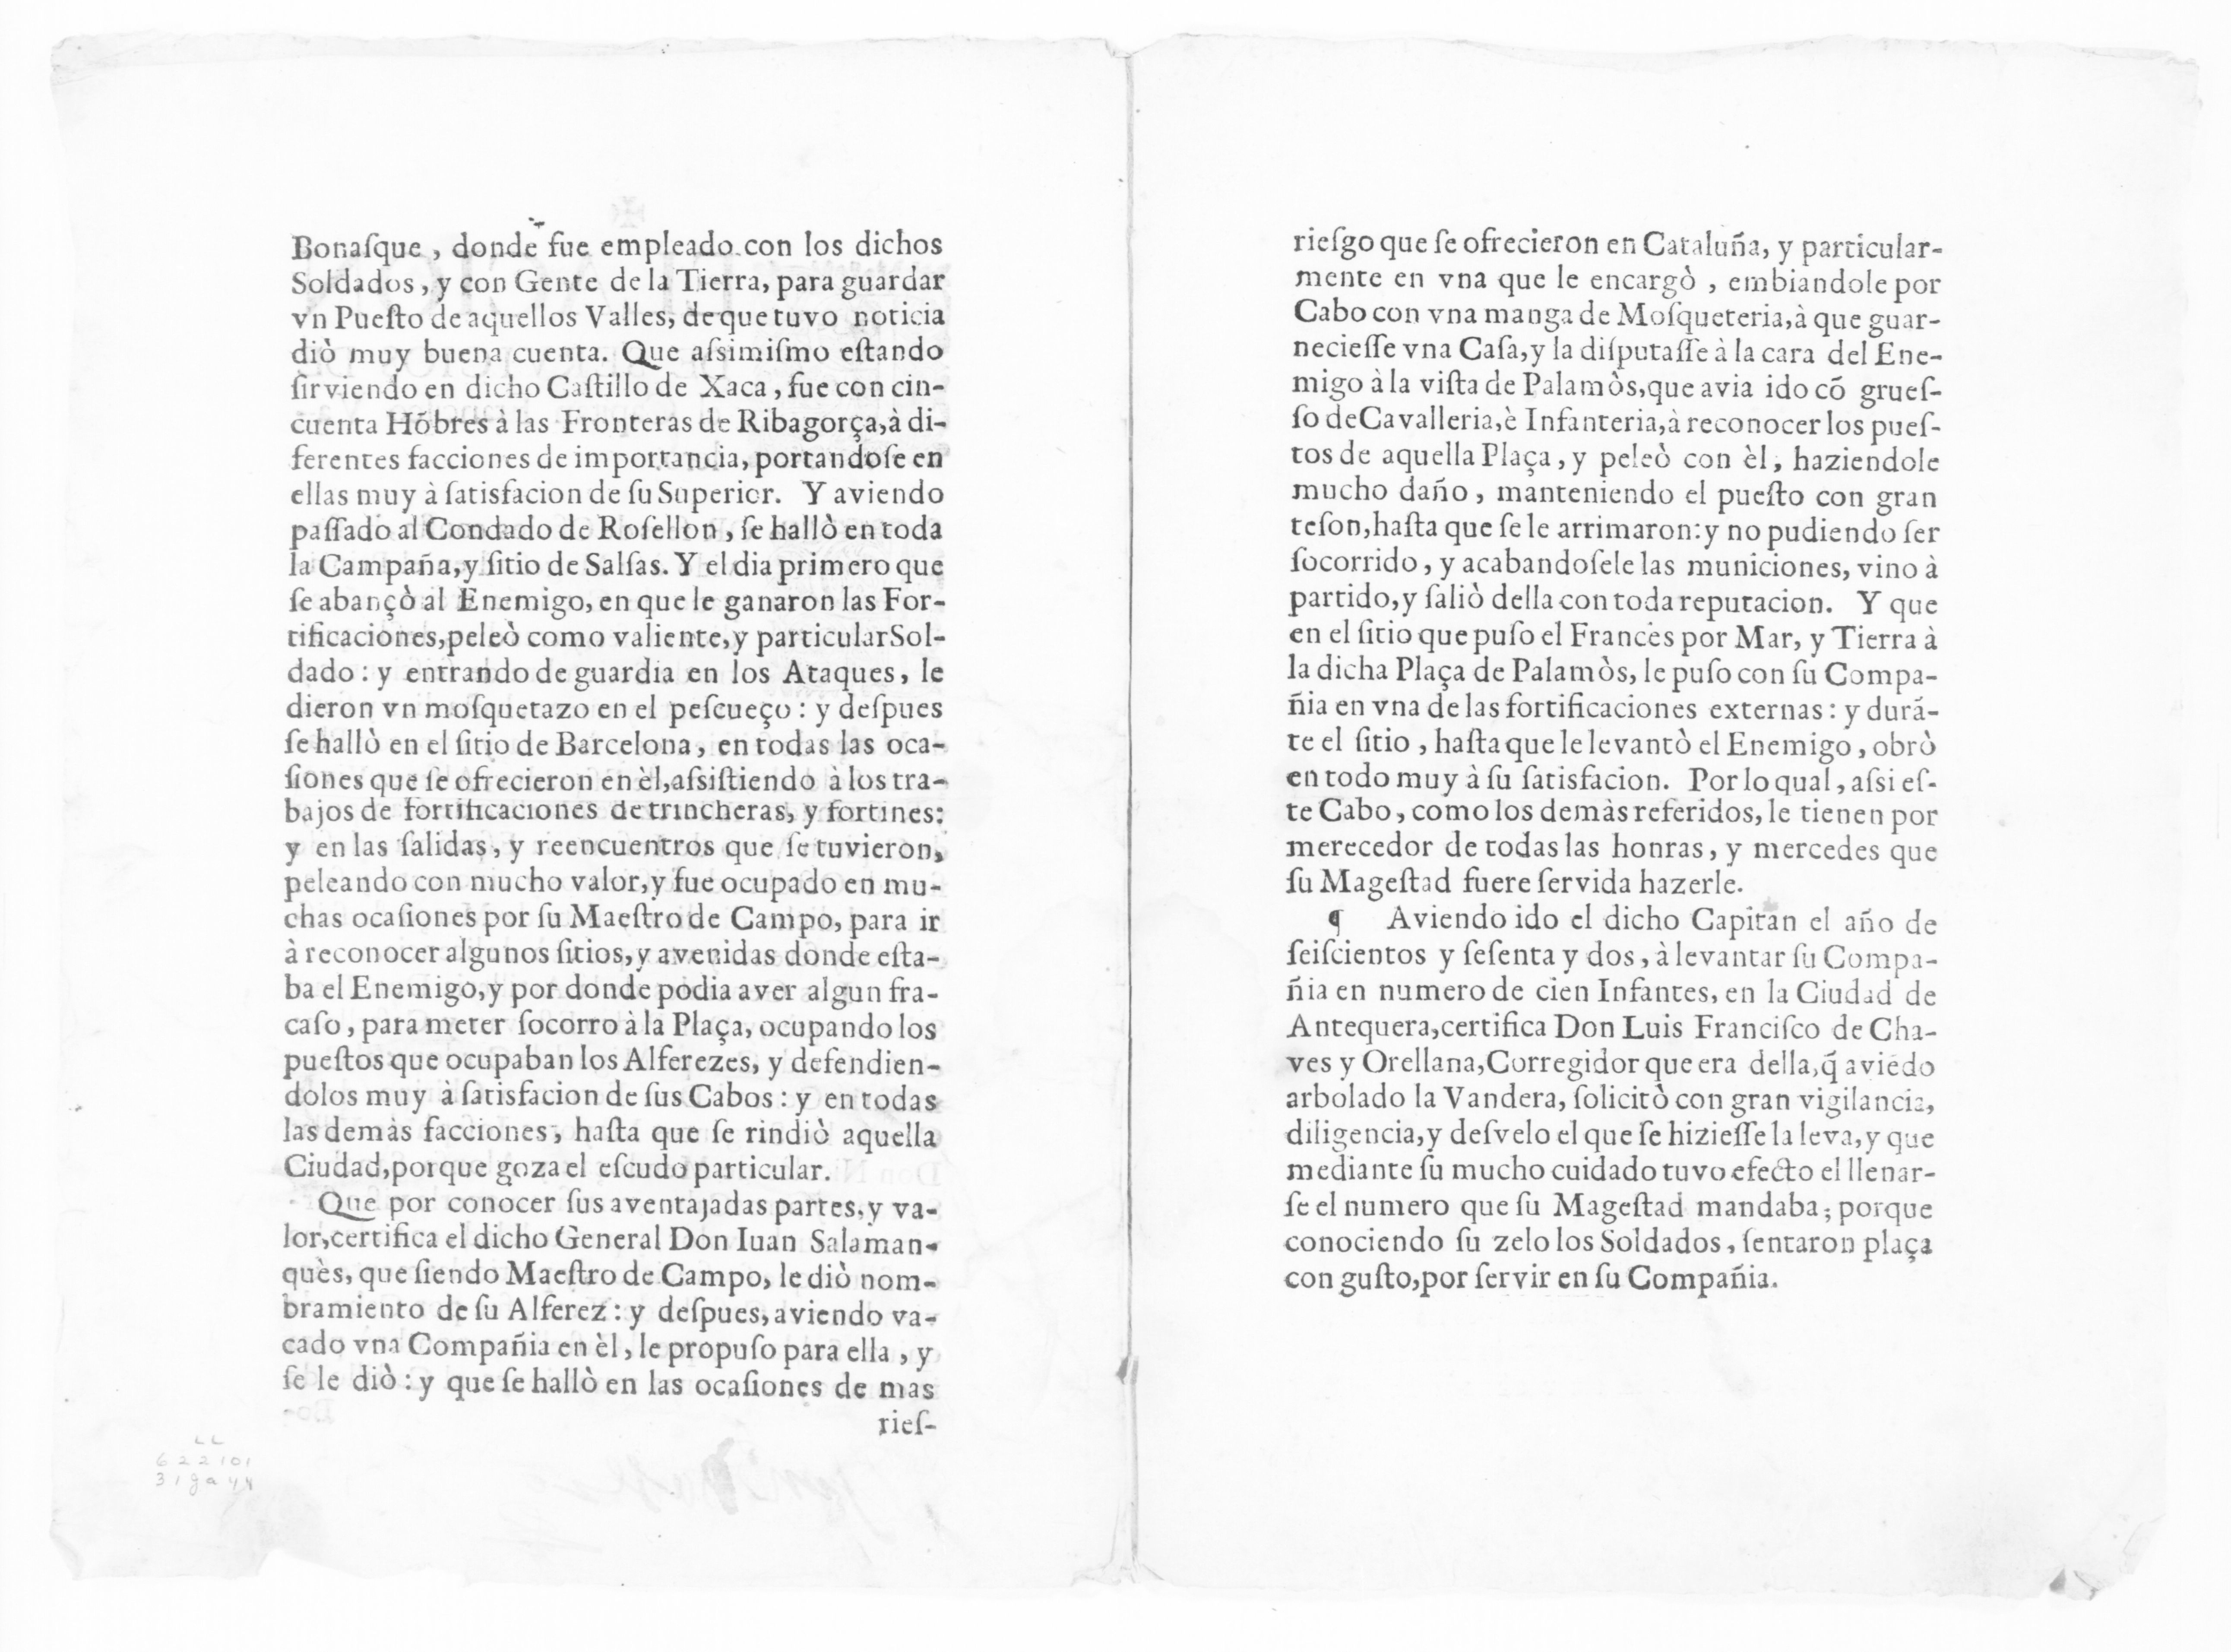 Bonaſque, donde fue empleado con los dichos
Soldados, y con Gente de la Tierra, para guardar
vn Pueſto de aquellos Valles, de que tuvo noticia
diò muy buena cuenta. Que aſsimiſmo eſtando
ſirviendo en dicho Caſtillo de Xaca, fue con cin-
cuenta Hõbres à las Fronteras de Ribagorça, à di-
ferentes facciones de importancia, portandoſe en
ellas muy à ſatisfacion de ſu Superior. Y aviendo
paſſado al Condado de Roſellon, ſe hallò en toda
la Campaña, y ſitio de Salſas. Y el dia primero que
ſe abançò al Enemigo, en que le ganaron las For-
tificaciones, peleò como valiente, y particular Sol-
dado: y entrando de guardia en los Ataques, le
dieron vn moſquetazo en el peſcueço: y deſpues
ſe hallò en el ſitio de Barcelona, en todas las oca-
ſiones que ſe ofrecieron en èl, aſsiſtiendo à los tra-
bajos de fortificaciones de trincheras, y fortines:
y en las ſalidas, y reencuentros que ſe tuvieron,
peleando con mucho valor, y fue ocupado en mu-
chas ocaſiones por ſu Maeſtro de Campo, para ir
à reconocer algunos ſitios, y avenidas donde eſta-
ba el Enemigo, y por donde podia aver algun fra-
caſo, para meter ſocorro à la Plaça, ocupando los
pueſtos que ocupaban los Alferezes, y defendien-
dolos muy à ſatisfacion de ſus Cabos: y en todas
las demàs facciones, haſta que ſe rindiò aquella
Ciudad, porque goza el eſcudo particular.
Que por conocer ſus aventajadas partes, y va-
lor, certifica el dicho General Don Iuan Salaman-
quès, que ſiendo Maeſtro de Campo, le diò nom-
bramiento de ſu Alferez: y deſpues, aviendo va-
cado vna Compañia en èl, le propuſo para ella, y
ſe le diò: y que ſe hallò en las ocaſiones de mas
rieſ-
622101
rieſgo que ſe ofrecieron en Cataluña, y particular-
mente en vna que le encargò, embiandole por
Cabo con vna manga de Moſqueteria, à que guar-
necieſſe vna Caſa, y la diſputaſſe à la cara del Ene-
migo à la viſta de Palamòs, que avia ido cõ grueſ-
ſo de Cavalleria, è Infanteria, à reconocer los pueſ-
tos de aquella Plaça, y peleò con èl, haziendole
mucho daño, manteniendo el pueſto con gran
teſon, haſta que ſe le arrimaron: y no pudiendo ſer
ſocorrido, y acabandoſele las municiones, vino à
partido, y ſaliò della con toda reputacion. Y que
en el ſitio que puſo el Francès por Mar, y Tierra à
la dicha Plaça de Palamòs, le puſo con ſu Compa-
ñia en vna de las fortificaciones externas: y durã-
te el ſitio, haſta que le levantò el Enemigo, obrò
en todo muy à ſu ſatisfacion. Por lo qual, aſsi eſ-
te Cabo, como los demàs referidos, le tienen por
merecedor de todas las honras, y mercedes que
ſu Mageſtad fuere ſervida hazerle.
¶ Aviendo ido el dicho Capitan el año de
ſeiſcientos y ſeſenta y dos, à levantar ſu Compa-
ñia en numero de cien Infantes, en la Ciudad de
Antequera, certifica Don Luis Franciſco de Cha-
ves y Orellana, Corregidor que era della, q̃ aviẽdo
arbolado la Vandera, ſolicitò con gran vigilancia,
diligencia, y deſvelo el que ſe hizieſſe la leva, y que
mediante ſu mucho cuidado tuvo efecto el llenar-
ſe el numero que ſu Mageſtad mandaba; porque
conociendo ſu zelo los Soldados, ſentaron plaça
con guſto, por ſervir en ſu Compañia.